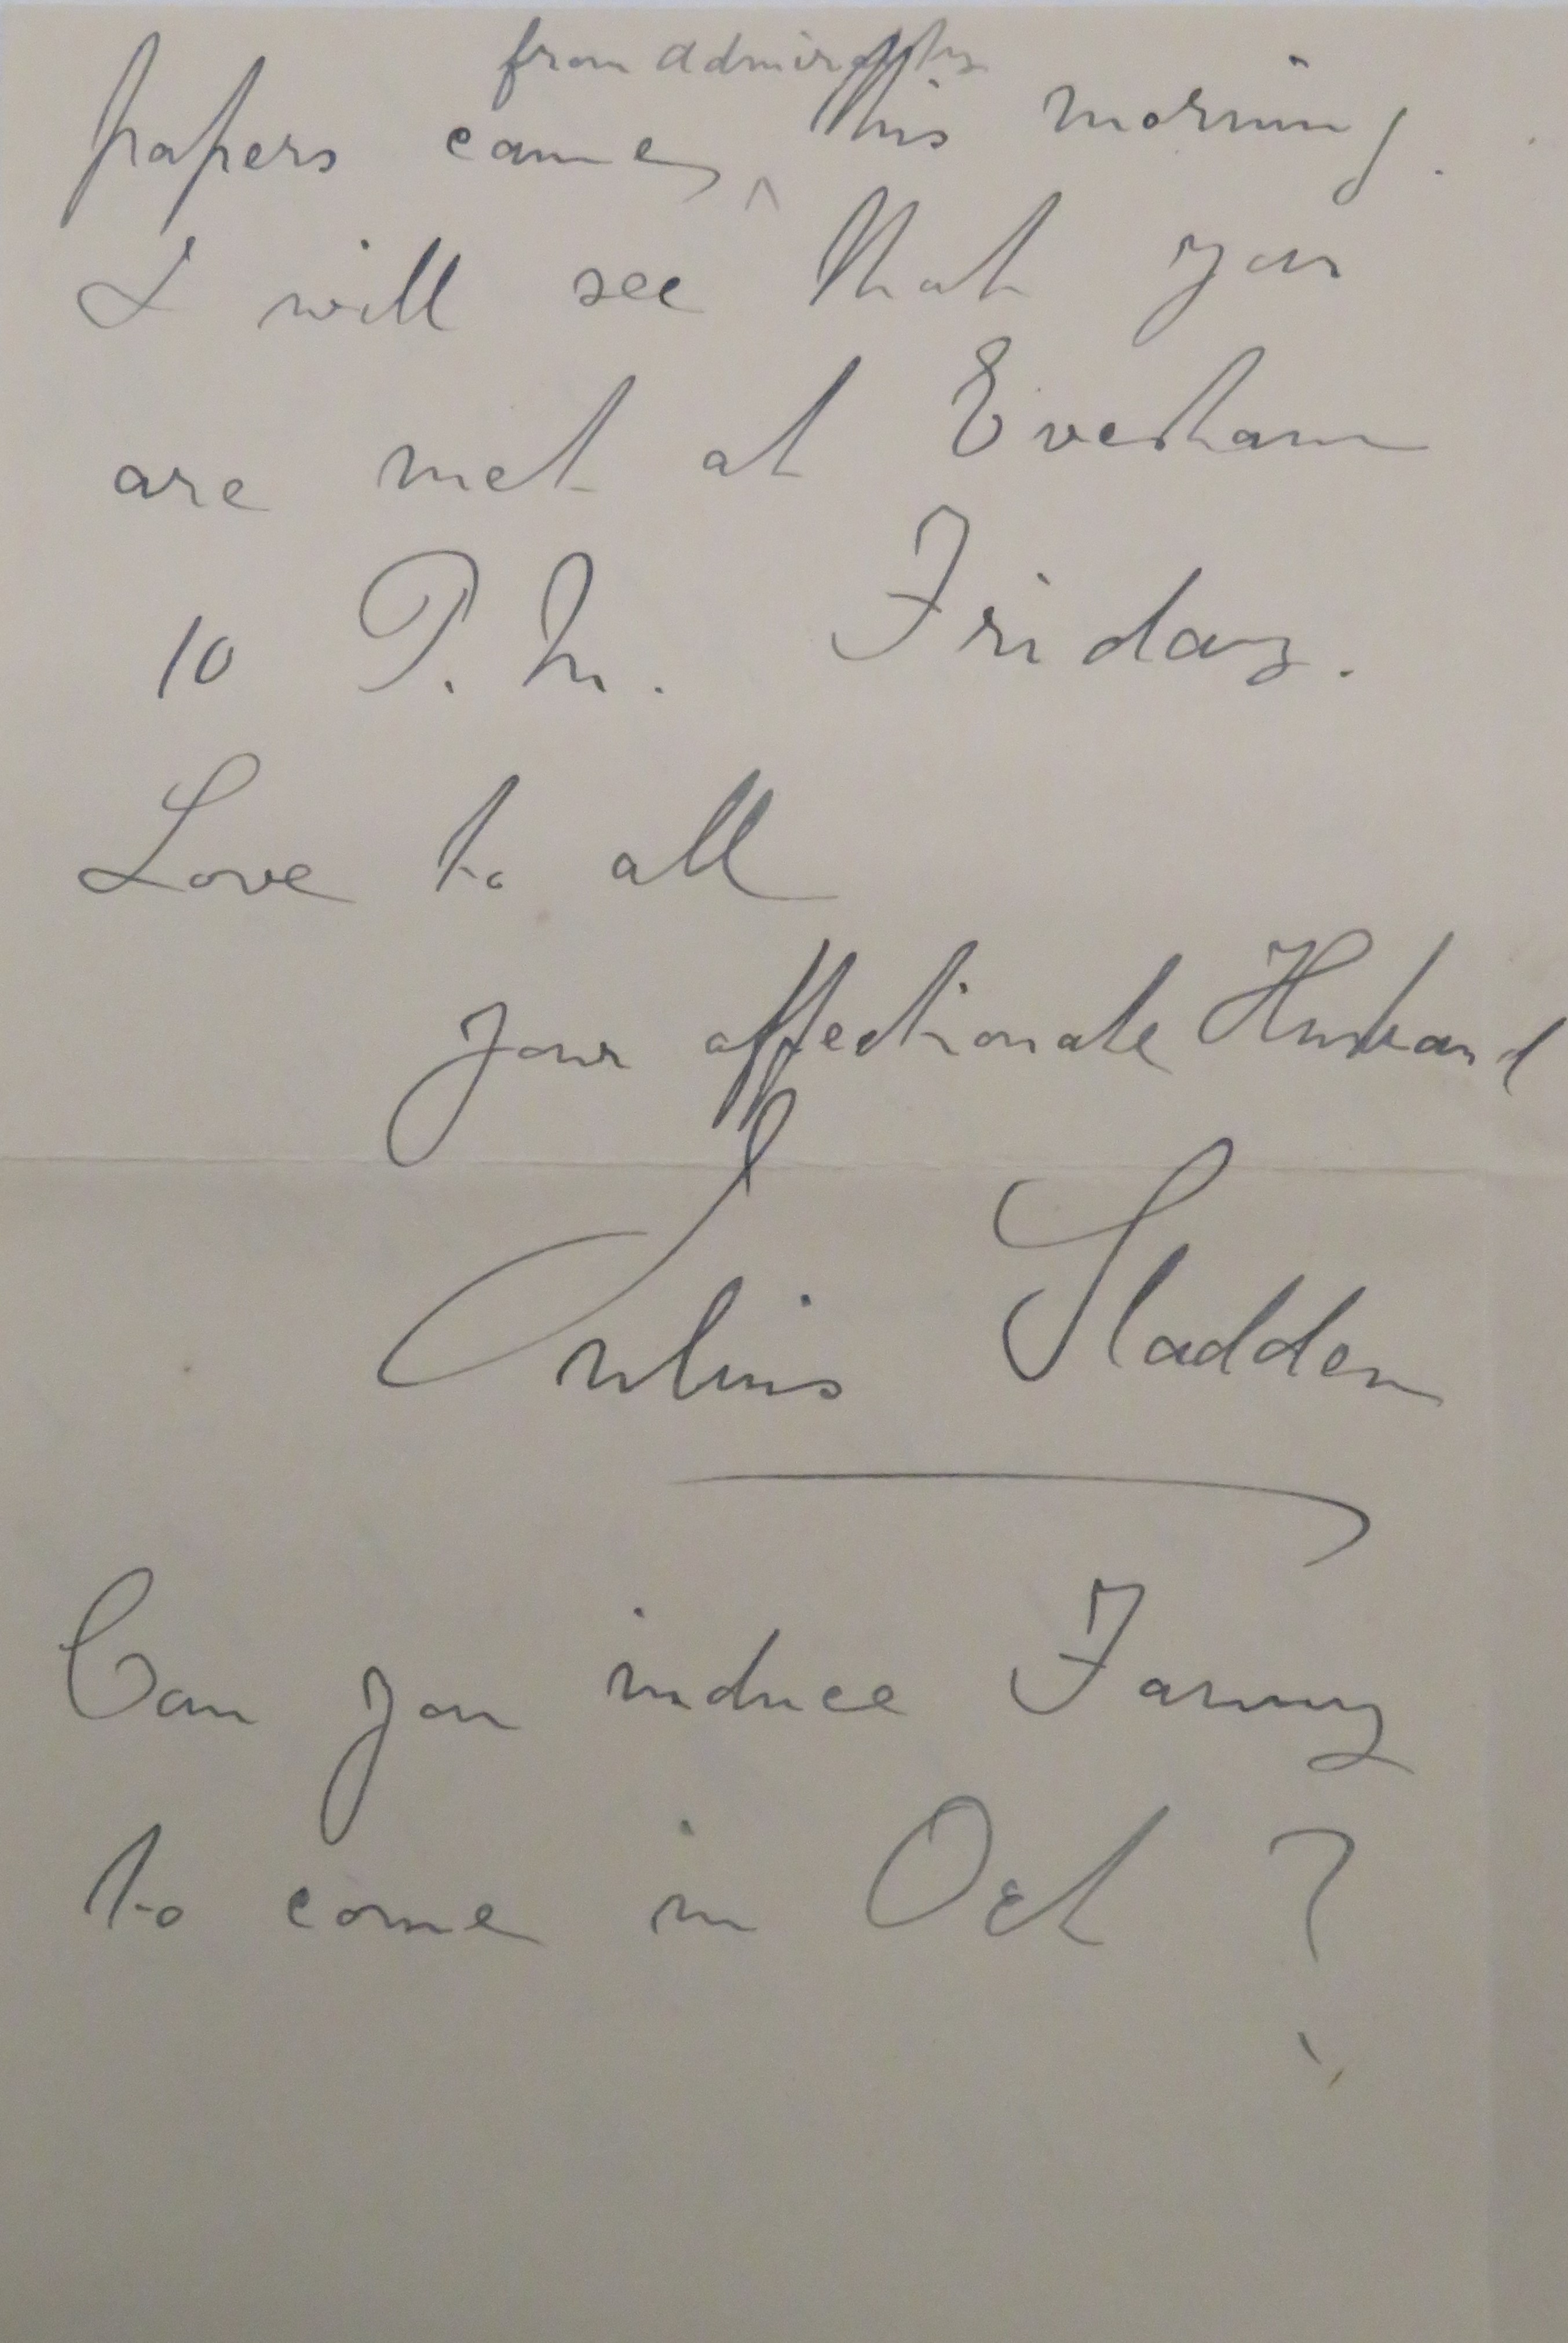 from Admiralty
papers came ^ this morning.
I will see that you
are met at Evesham
10 P.M. Friday.
Love to all
your affectionate Husband
Julius Sladden
Can you induce Fanny
to come in Oct ?